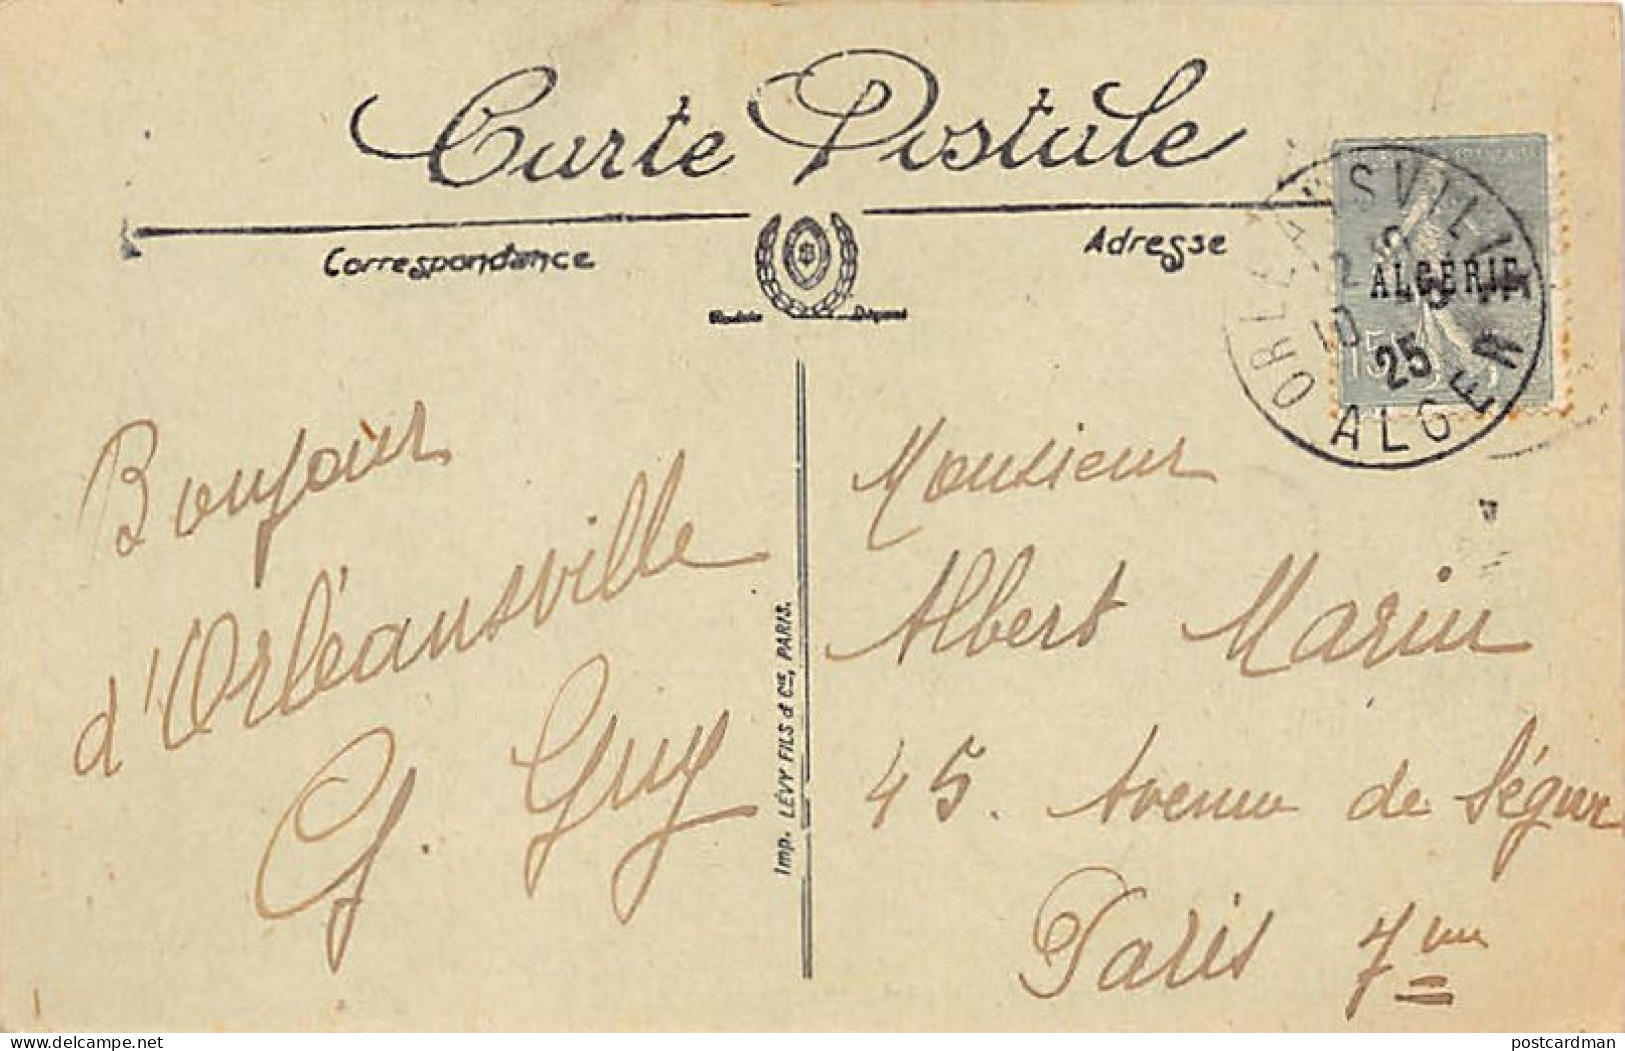 Carte Postale
Correspondance
Adresse
Modèle Déposé
ORLEANSVILLE
ALGER
25
ALGERIE
15
Bonjour
d'Orléansville
G. Guy
Imp. LÉVY FILS & Cie, PARIS.
Monsieur
Albert Marin
45. Avenue de Ségur
Paris 7me
postcardman